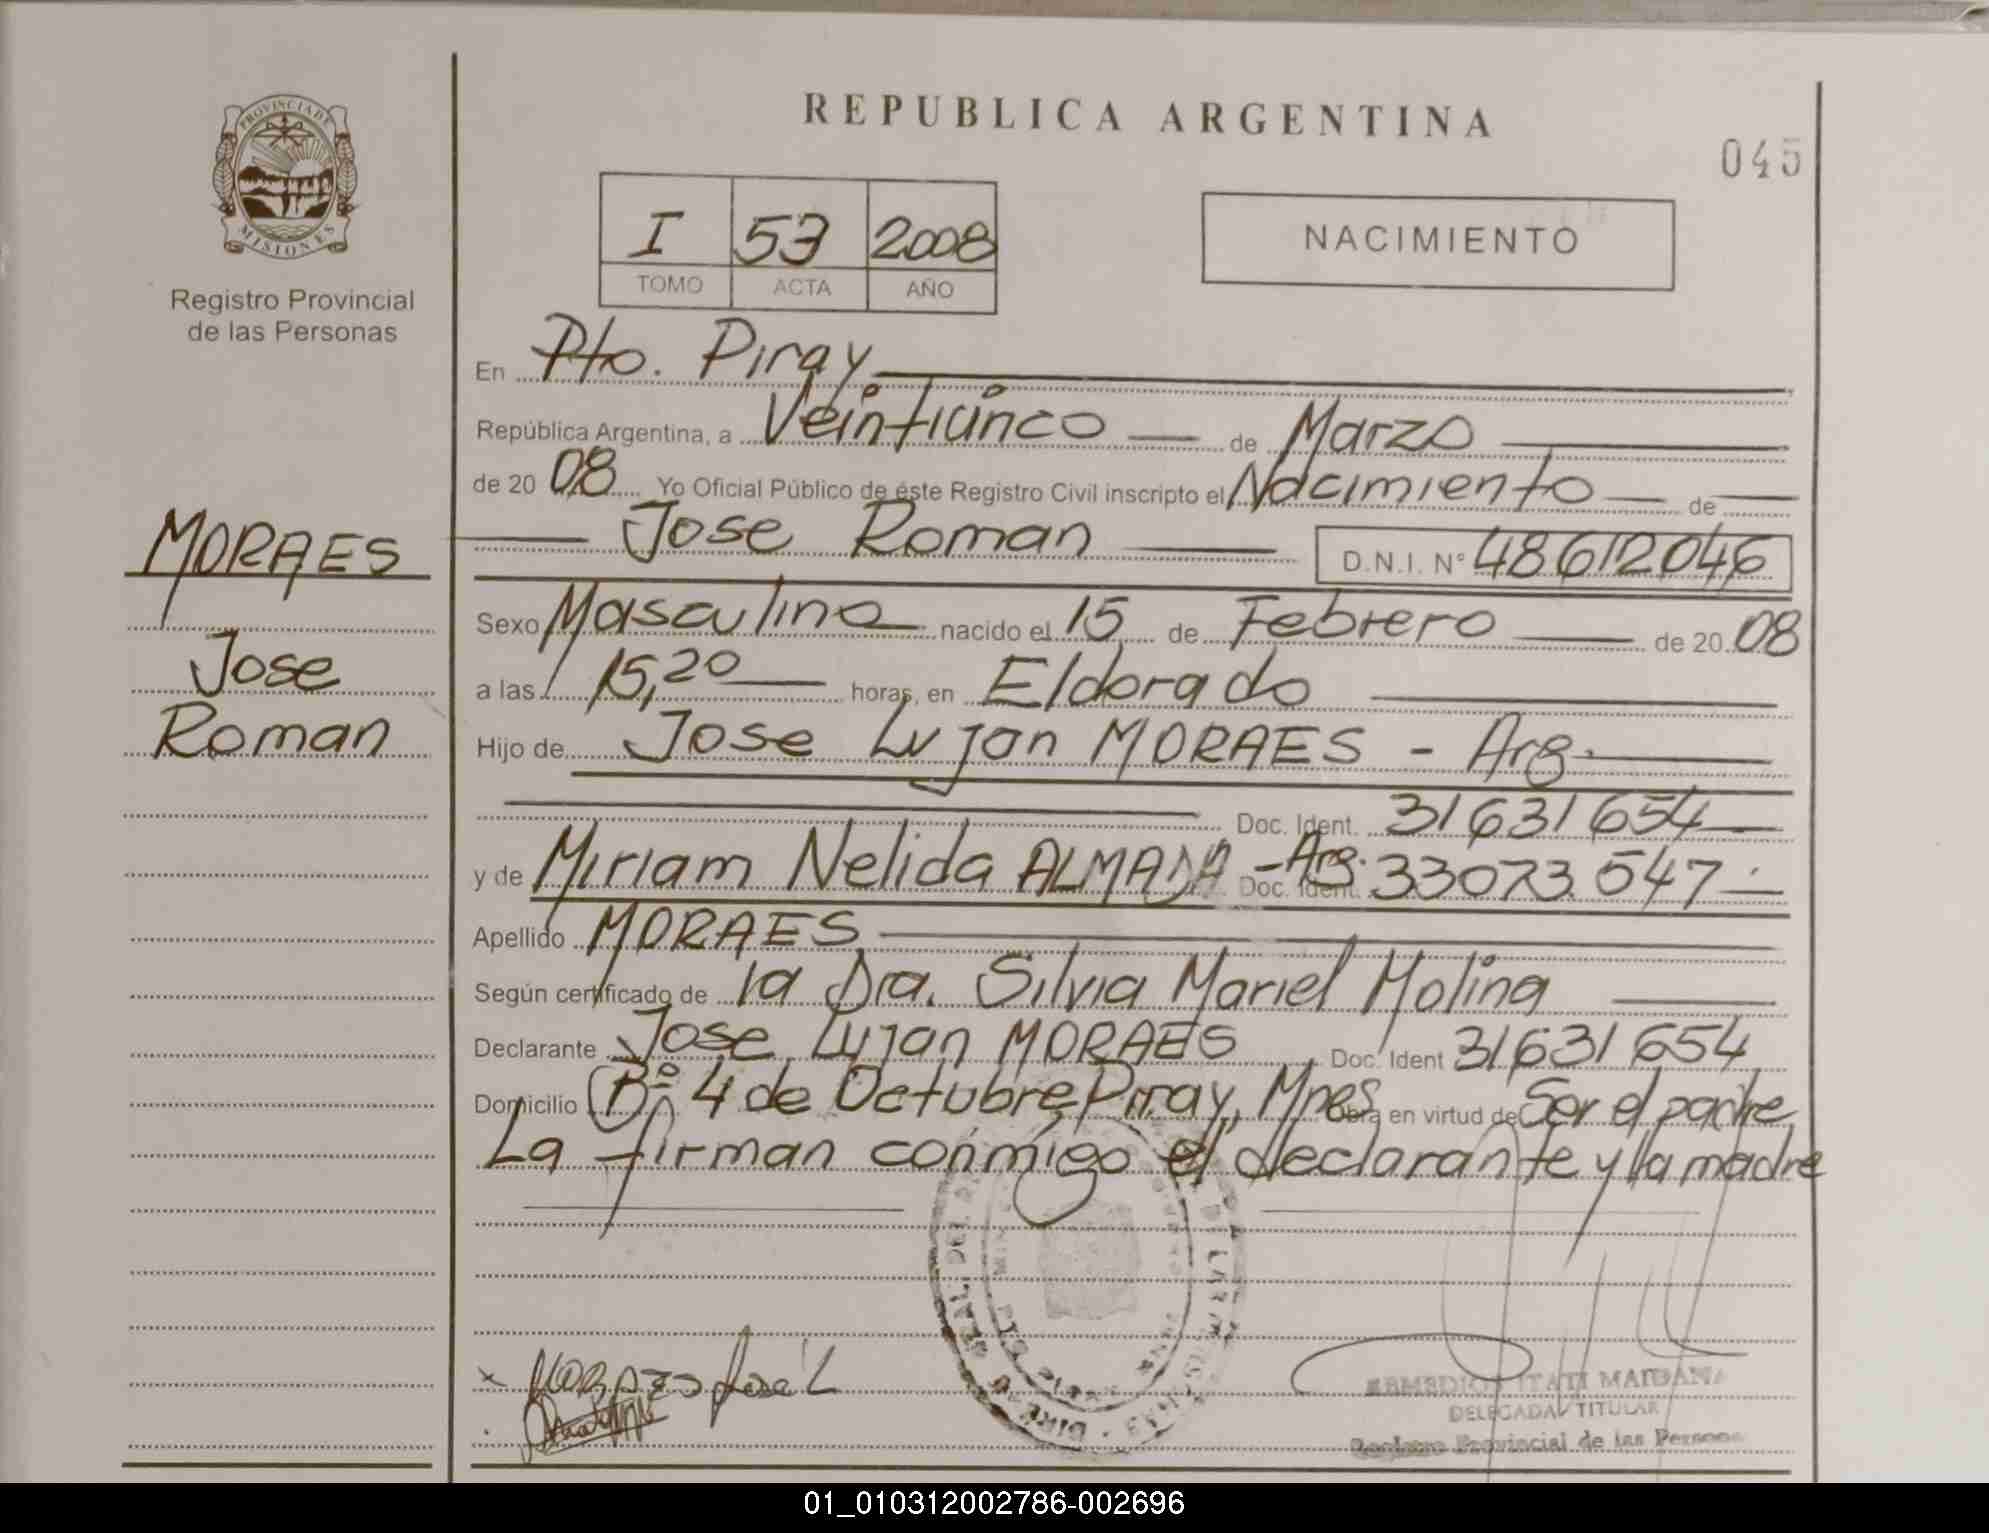 PROVINCIA DE
MISIONES
Registro Provincial
de las Personas
MORAES
Jose
Roman
REPUBLICA ARGENTINA
045
I 53 2008
TOMO ACTA AÑO
NACIMIENTO
En Pto. Piray
República Argentina, a Veinticinco de Marzo
de 20 08 Yo Oficial Público de éste Registro Civil inscripto el Nacimiento de
Jose Roman D.N.I. Nº 48612046
Sexo Masculino nacido el 15 de Febrero de 20 08
a las 15,20 horas, en Eldorado
Hijo de Jose Lujan MORAES - Arg.
Doc. Ident. 31631654
y de Miriam Nelida ALMADA - Arg. Doc. Ident. 33073547
Apellido MORAES
Según certificado de la Dra. Silvia Mariel Molina
Declarante Jose Lujan MORAES Doc. Ident 31631654
Domicilio Bº 4 de Octubre Piray, Mnes Obra en virtud de Ser el padre
La firman conmigo el declarante y la madre
MORAES José L
ITATI MAIDANA
DELEGADA TITULAR
Registro Provincial de las Personas
01_010312002786-002696